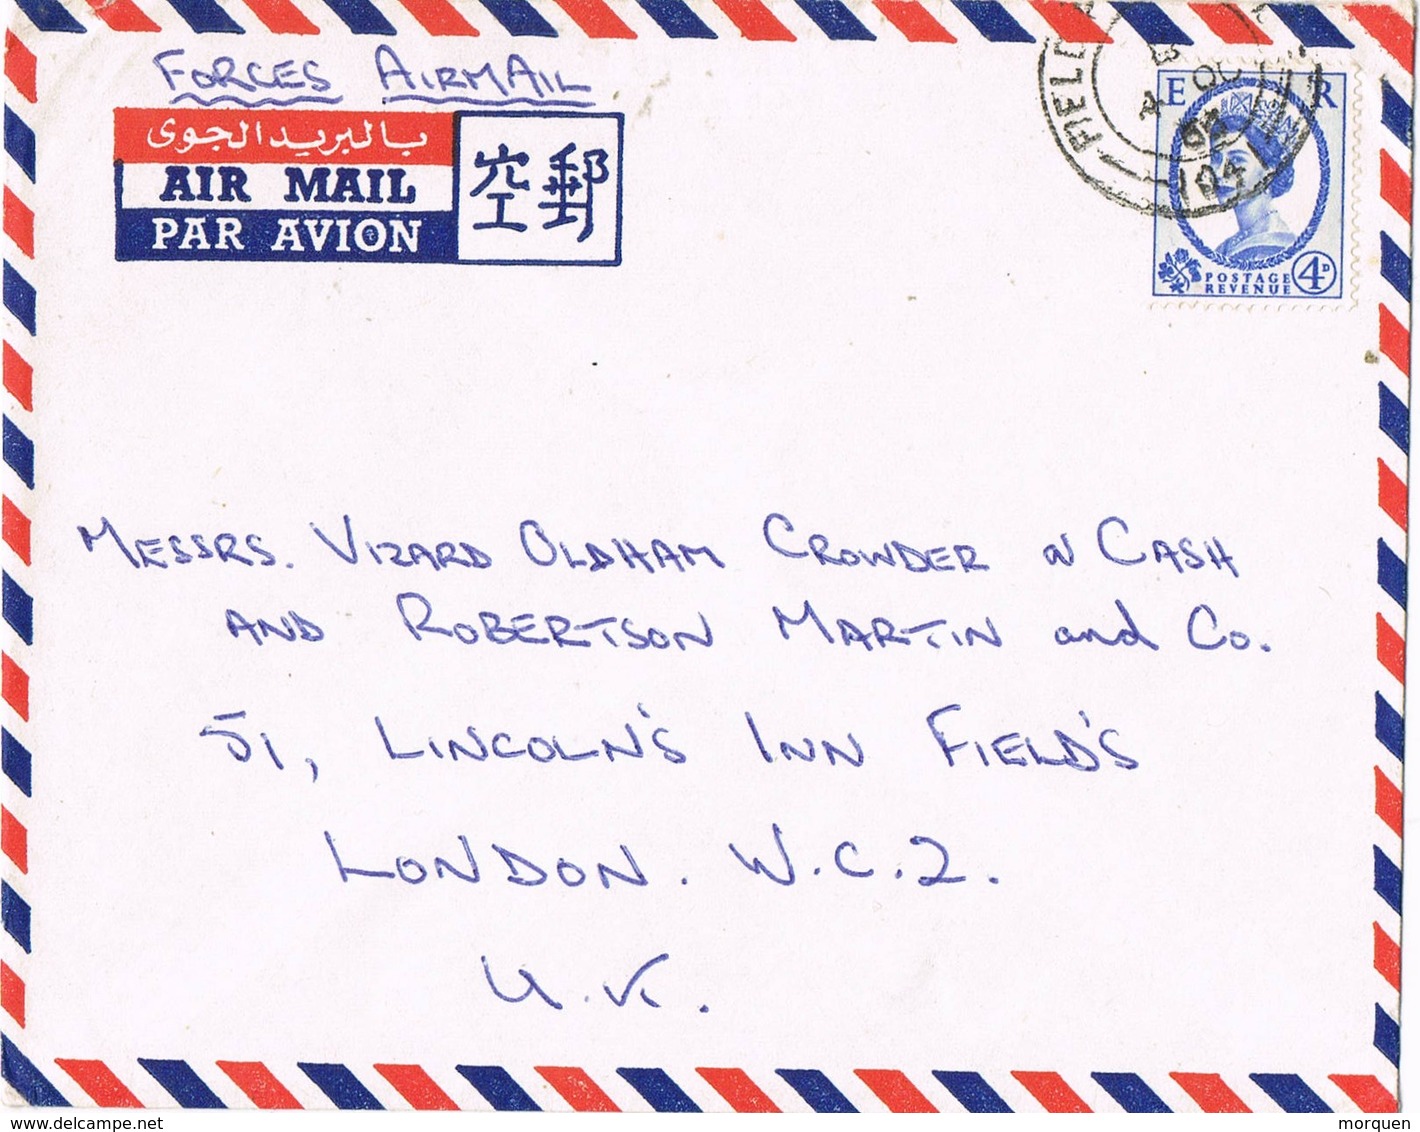 FORCES AIRMAIL
بالبريد الجوى
AIR MAIL
PAR AVION
空郵
E R
POSTAGE
REVENUE
4D
MESSRS. VIZARD OLDHAM CROWDER & CASH
AND ROBERTSON MARTIN and Co.
51, LINCOLN'S INN FIELD'S
LONDON. W.C.2.
U.K.
delcampe.net
morquen